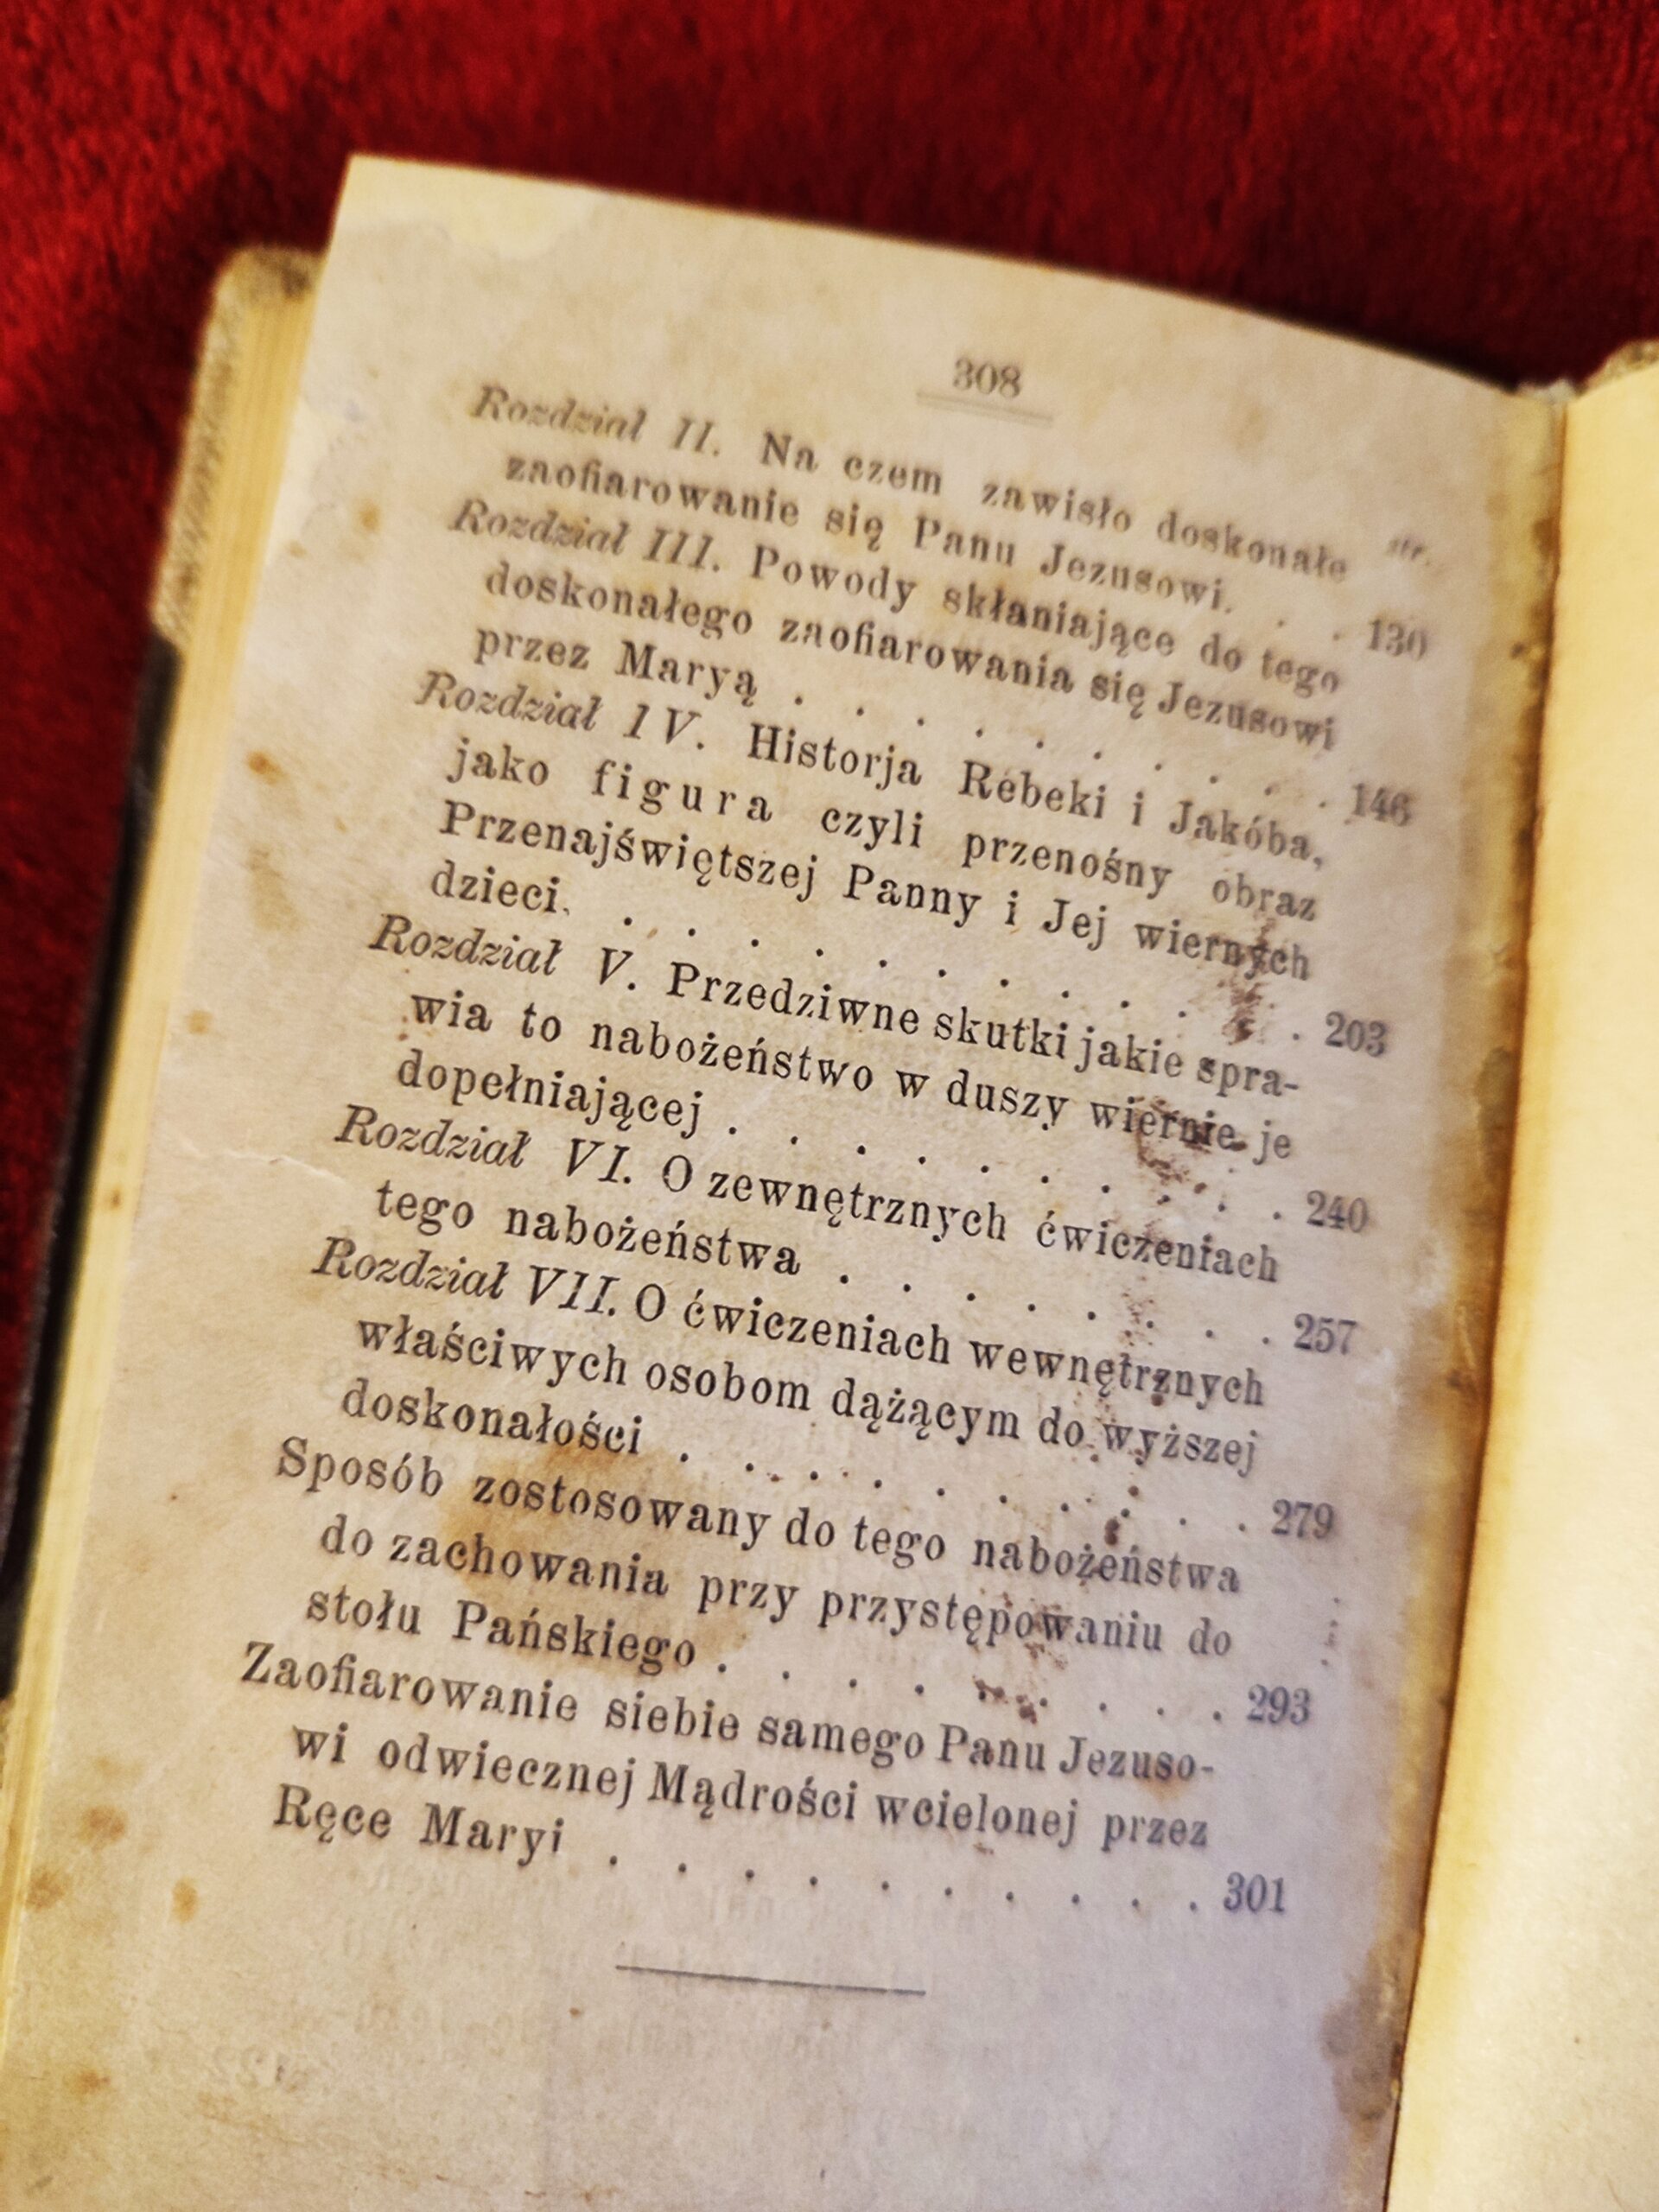 308
str.
Rozdział II. Na czem zawisło doskonałe
zaofiarowanie się Panu Jezusowi. . . 130
Rozdział III. Powody skłaniające do tego
doskonałego zaofiarowania się Jezusowi
przez Maryą . . . . . . . . . . 146
Rozdział IV. Historja Rebeki i Jakóba,
jako figura czyli przenośny obraz
Przenajświętszej Panny i Jej wiernych
dzieci. . . . . . . . . . . . . 203
Rozdział V. Przedziwne skutki jakie spra-
wia to nabożeństwo w duszy wiernie je
dopełniającej . . . . . . . . . . 240
Rozdział VI. O zewnętrznych ćwiczeniach
tego nabożeństwa . . . . . . . . 257
Rozdział VII. O ćwiczeniach wewnętrznych
właściwych osobom dążącym do wyższej
doskonałości . . . . . . . . . . 279
Sposób zostosowany do tego nabożeństwa
do zachowania przy przystępowaniu do
stołu Pańskiego . . . . . . . . . 293
Zaofiarowanie siebie samego Panu Jezuso-
wi odwiecznej Mądrości wcielonej przez
Ręce Maryi . . . . . . . . . . 301